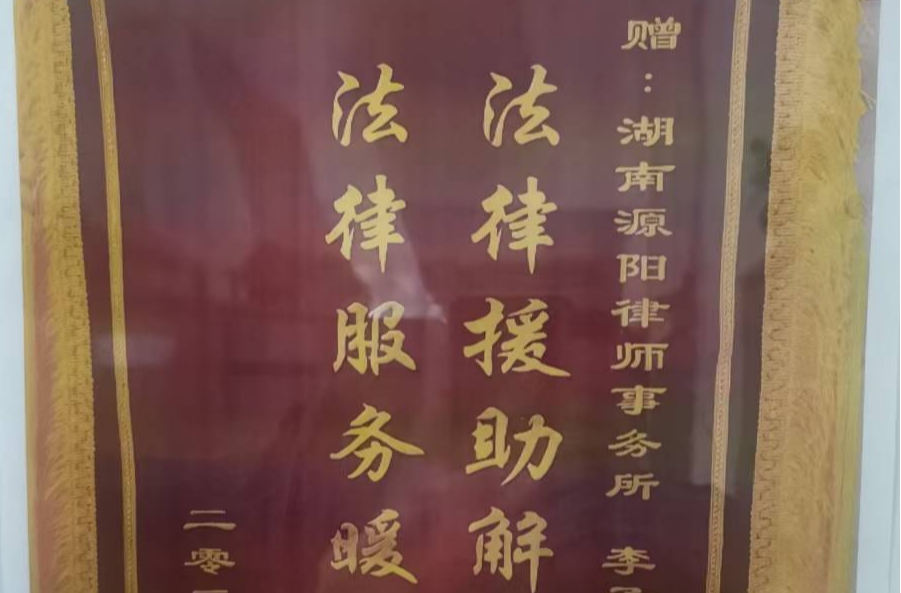 赠：湖南源阳律师事务所 李
法律援助解
法律服务暖
二零